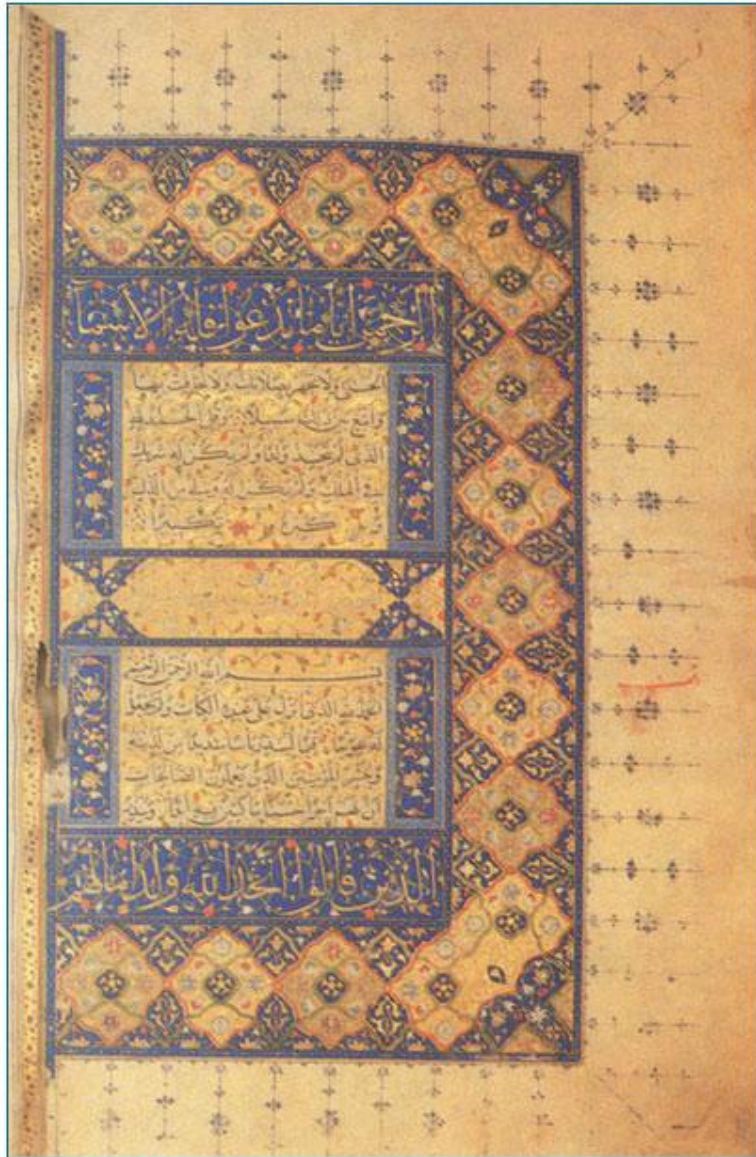 الرحمن ايا ما تدعوا فله الاسما
الحسنى ولا تجهر بصلاتك ولا تخافت بها
وابتغ بين ذلك سبيلا وقل الحمد لله
الذى لم يتخذ ولدا ولم يكن له شريك
فى الملك ولم يكن له ولى من الذل
وكبره تكبيرا
بسم الله الرحمن الرحيم
الحمد لله الذى انزل على عبده الكتاب ولم يجعل
له عوجا قيما لينذر باسا شديدا من لدنه
ويبشر المؤمنين الذين يعملون الصالحات
ان لهم اجرا حسنا ماكثين فيه ابدا وينذر
الذين قالوا اتخذ الله ولدا ما لهم